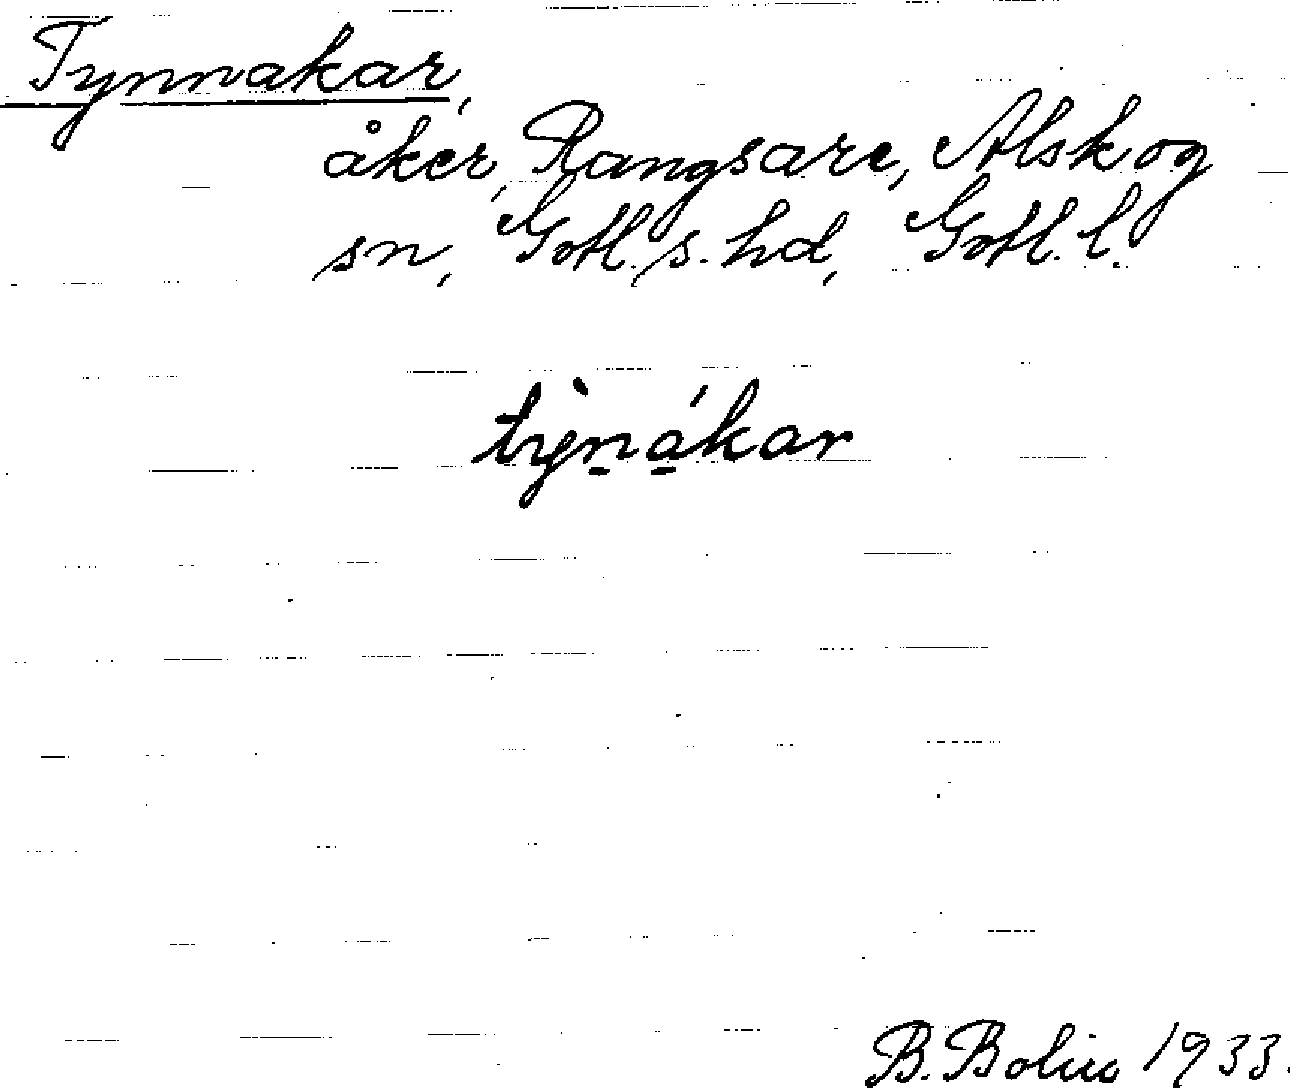 Tynnakar,
åker, Rangsare, Alskog
sn, Gotl. s. hd, Gotl. l.
tỳṉá̱kar
B. Bolin 1933.